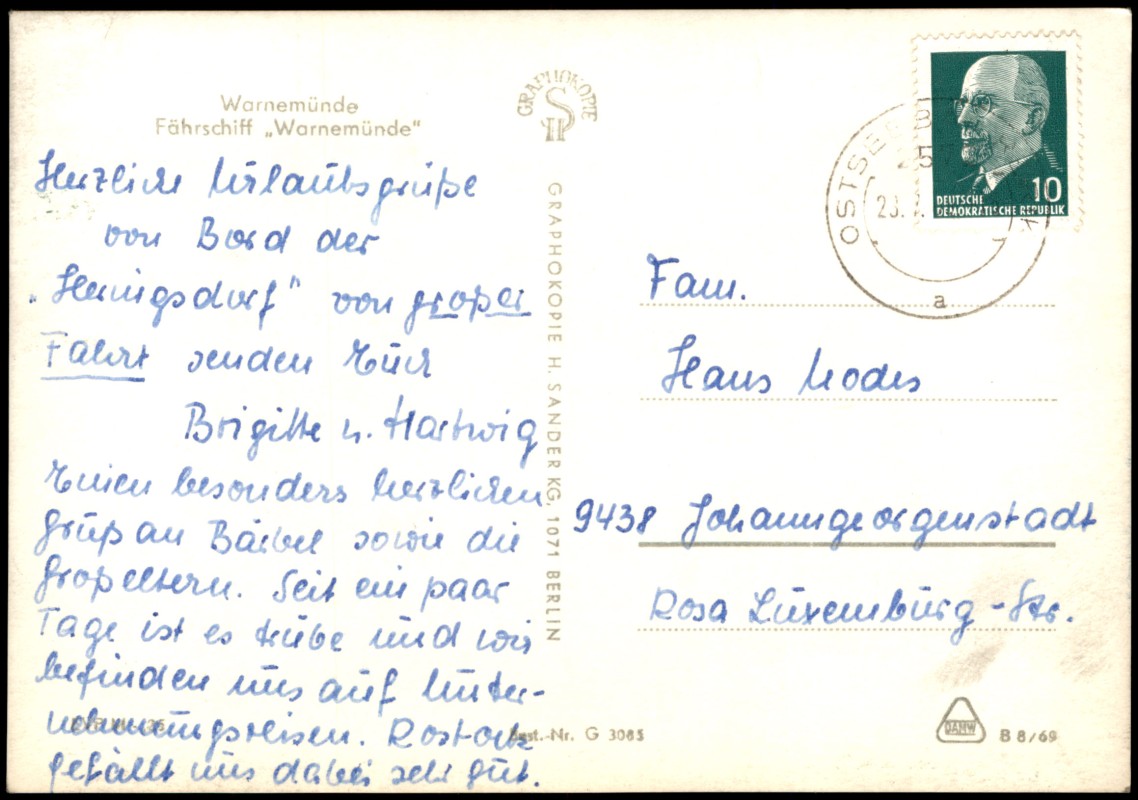 Warnemünde
Fährschiff „Warnemünde"
Herzliche Urlaubsgrüße
von Bord der
„Heringsdorf" von großer
Fahrt senden Euch
Brigitte u. Hartwig
Einen besonders herzlichen
Gruß an Bärbel sowie die
Großeltern. Seit ein paar
Tage ist es trübe und wir
befinden uns auf Unter-
nehmungsreisen. Rostock
gefällt uns dabei sehr gut.
GRAPHOKOPIE
SH
GRAPHOKOPIE H. SANDER KG, 1071 BERLIN
Best.-Nr. G 3085
DEUTSCHE
DEMOKRATISCHE REPUBLIK
10
OSTSEEB
23.
a
Fam.
Hans Modes
9438 Johanngeorgenstadt
Rosa Luxemburg-Str.
DAMW
B 8/69